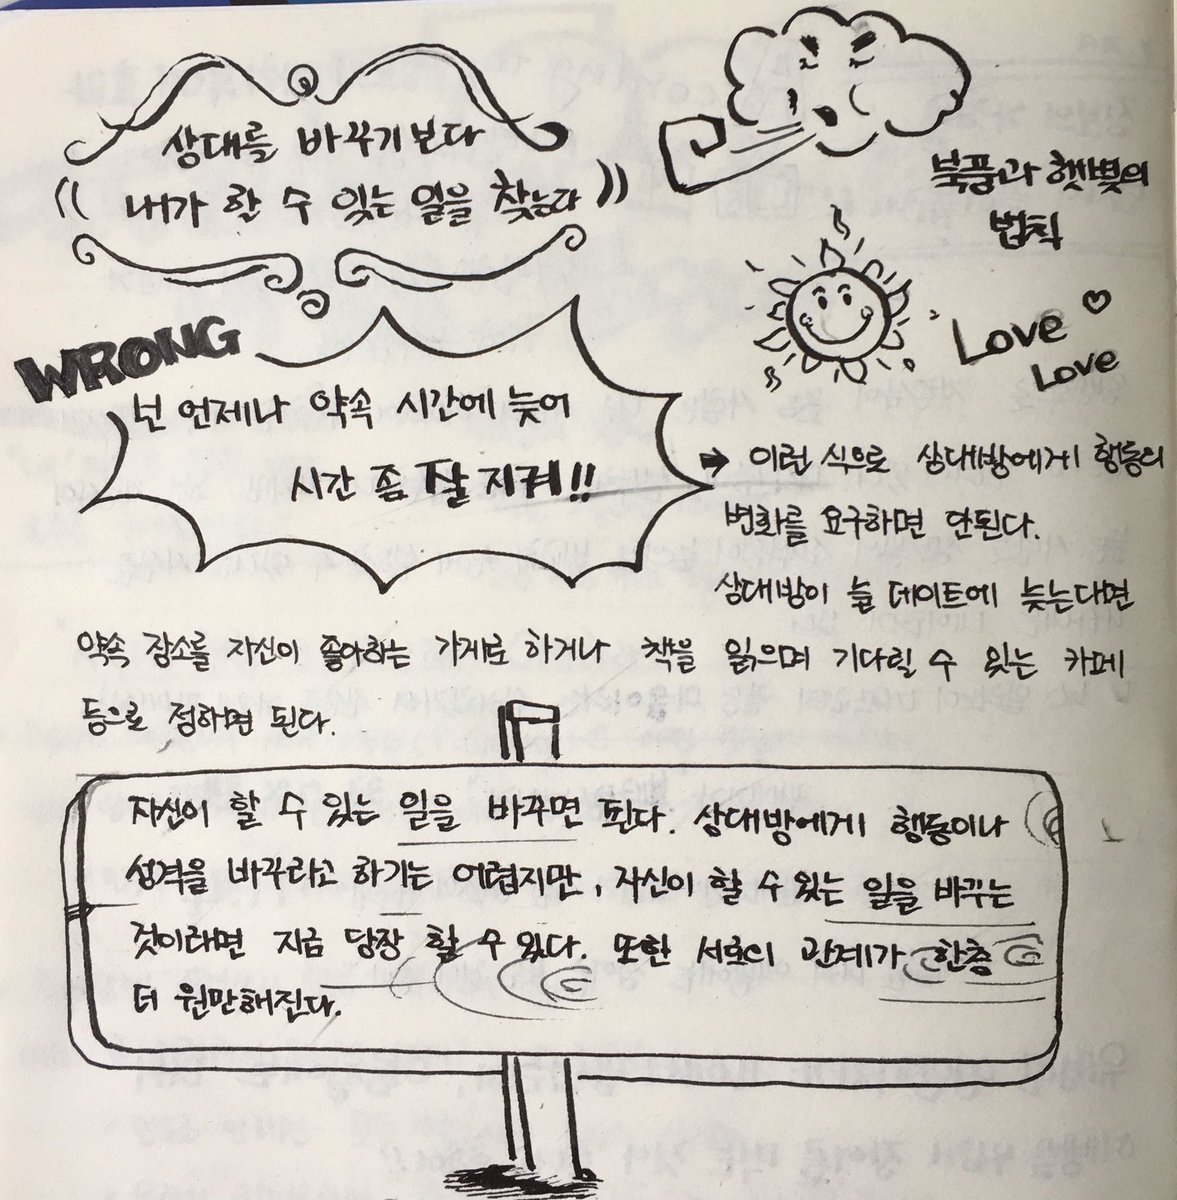 상대를 바꾸기보다
내가 할 수 있는 일을 찾는다
북풍과 햇빛의
법칙
Love
Love
WRONG
넌 언제나 약속 시간에 늦어
시간 좀 잘 지켜!!
→ 이런 식으로 상대방에게 행동의
변화를 요구하면 안된다.
상대방이 늘 데이트에 늦는다면
약속 장소를 자신이 좋아하는 가게로 하거나 책을 읽으며 기다릴 수 있는 카페
등으로 정하면 된다.
자신이 할 수 있는 일을 바꾸면 된다. 상대방에게 행동이나
성격을 바꾸라고 하기는 어렵지만, 자신이 할 수 있는 일을 바꾸는
것이라면 지금 당장 할 수 있다. 또한 서로의 관계가 한층
더 원만해진다.